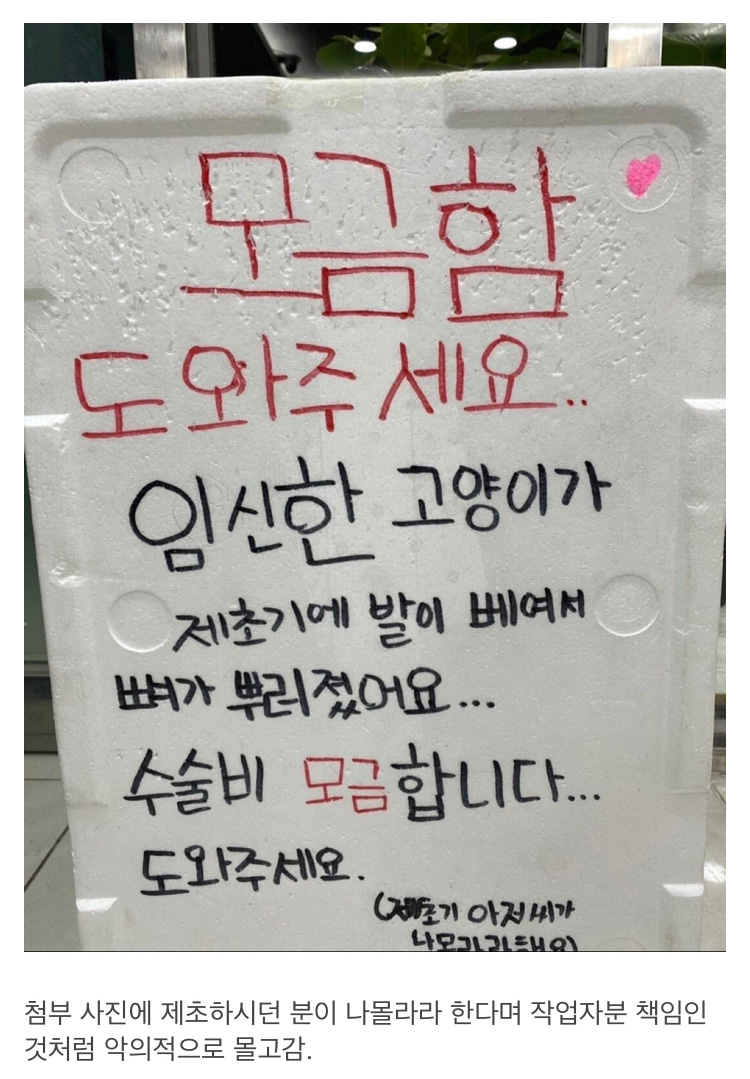 모금함
도와주세요..
임신한 고양이가
제초기에 발이 베여서
뼈가 뿌러졌어요...
수술비 모금합니다...
도와주세요.
(제초기 아저씨가
나몰라라해요)
첨부 사진에 제초하시던 분이 나몰라라 한다며 작업자분 책임인
것처럼 악의적으로 몰고감.